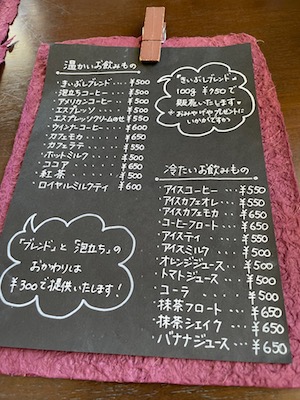 温かいお飲みもの
・きいぶしブレンド・・・¥500
・泡立ちコーヒー・・・¥500
・アメリカンコーヒー・・・¥500
・エスプレッソ・・・¥500
・エスプレッソクリームのせ・・・¥550
・ウインナーコーヒー・・・¥600
・カフェモカ・・・¥650
・カフェラテ・・・¥550
・ホットミルク・・・¥500
・ココア・・・¥650
・紅茶・・・¥500
・ロイヤルミルクティ・・・¥600
「きいぶしブレンド」
100g ¥950で
販売いたします♡
*おみやげやプレゼントに
いかがですか?
冷たいお飲みもの
・アイスコーヒー・・・¥550
・アイスカフェオレ・・・¥550
・アイスカフェモカ・・・¥650
・コーヒーフロート・・・¥650
・アイスティ・・・¥550
・アイスミルク・・・¥500
・オレンジジュース・・・¥500
・トマトジュース・・・¥500
・コーラ・・・¥500
・抹茶フロート・・・¥650
・抹茶シェイク・・・¥650
・バナナジュース・・・¥650
「ブレンド」と「泡立ち」の
おかわりは
¥300で提供いたします!